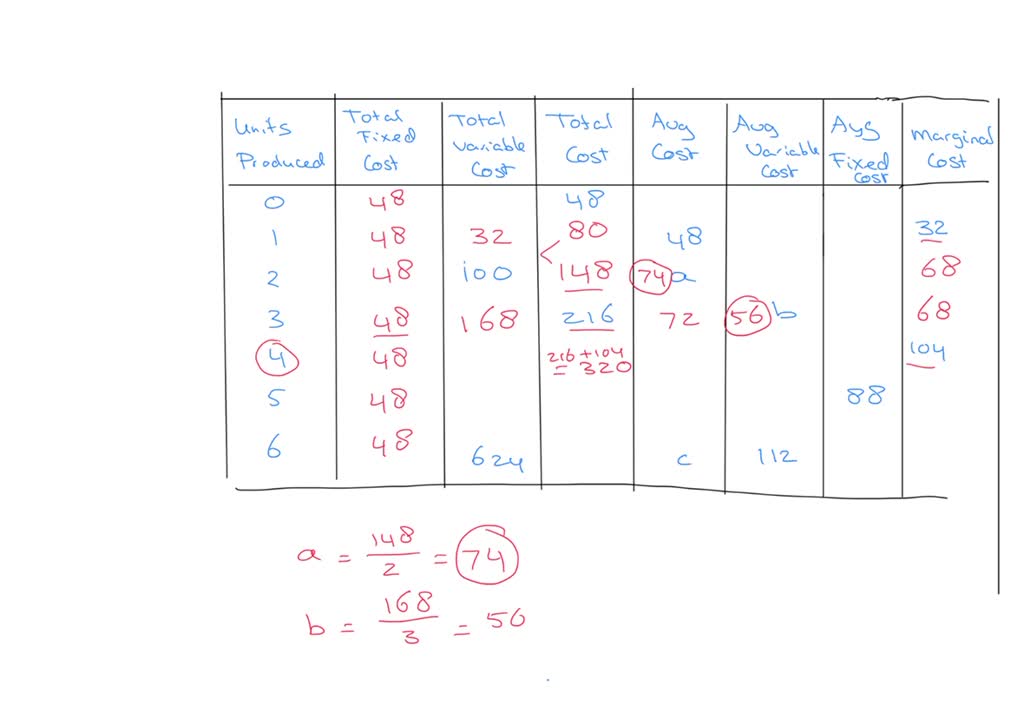 Units Produced | Total Fixed Cost | Total Variable Cost | Total Cost | Avg Cost | Avg Variable Cost | Avg Fixed Cost | Marginal Cost
0 48 48
1 48 32 80 48 32
2 48 100 < 148 74 a 68
3 48 168 216 72 56 b 68
4 48 216 + 104 = 320 104
5 48 88
6 48 624 c 112
a = 148 / 2 = 74
b = 168 / 3 = 56